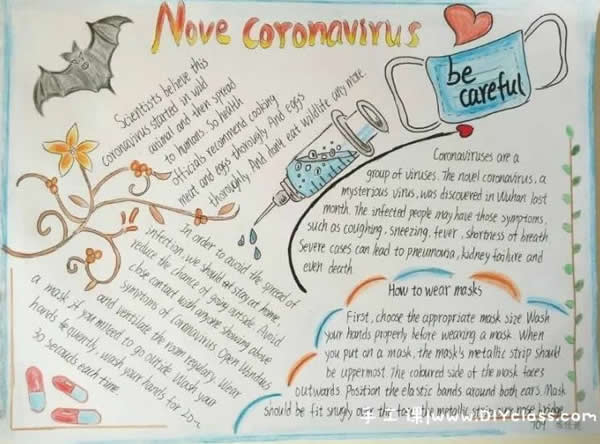 Nove coronavirus
be
careful
Scientists believe this
coronavirus started in wild
animal and then spread
to humans. So health
officials recommend cooking
meat and eggs thoroughly And eggs
thoroughly. And don't eat wildlife any more.
Coronaviruses are a
group of viruses. The novel coronavirus, a
mysterious virus, was discovered in Wuhan last
month. The infected people may have those symptoms,
such as coughing, sneezing, fever, shortness of breath
Severe cases can lead to pneumonia, kidney failure and
even death.
In order to avoid the spread of
infection, we should at stay at home,
reduce the chance of going outside. Avoid
close contact with anyone showing above
symptoms of coronavirus Open Windows
and ventilate the room regulary. Wear
a mask if you need to go outside Wash your
hands frequently, wash your hands for 20~
30 seconds each time
How to wear masks
First, choose the appropriate mask size Wash
your hands properly before wearing a mask. When
you put on a mask, the mask's metallic strip should
be uppermost. The coloured side of the mask faces
outwards. Position the elastic bands around both ears. Mask
should be fit snugly over the face, the metallic strip nose bridge
手工课|www.DIYclass.com